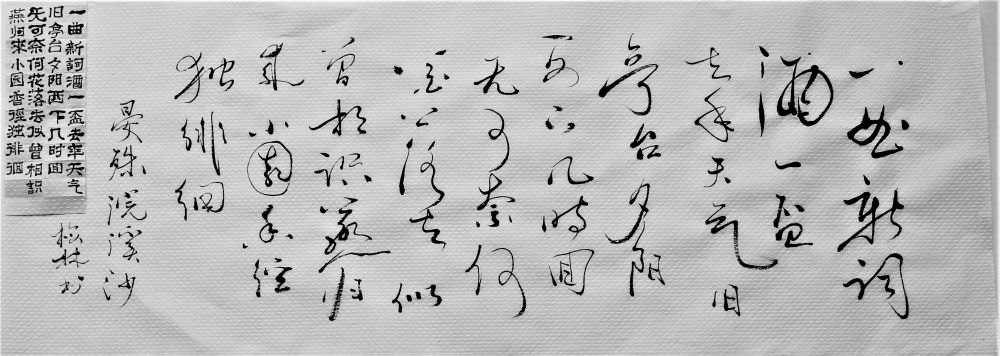 一曲新词
酒一盃
去年天气旧
亭台夕阳
西下几时回
无可奈何
花落去似
曾相识燕归
来小园香径
独徘徊
晏殊浣溪沙
林书
一曲新詞酒一盃去年天气
旧亭台夕阳西下几时回
旡可奈何花落去似曾相識
燕归來小园香徑独徘徊